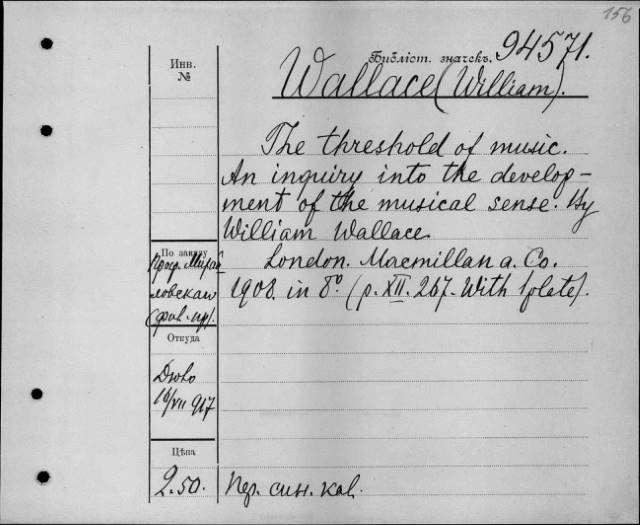 156
Библіот. значекъ. 94571.
Инв.
№
Wallace (William).
The threshold of music.
An inquiry into the develop-
ment of the musical sense. By
William Wallace.
London. Macmillan a. Co.
1908. in 8°. (p. XII. 267. With 1 plate).
По заказу
Проф. Мирай
ловскаго
Откуда
16/VII 917
Цѣна
2.50.
Пер. син. кол.